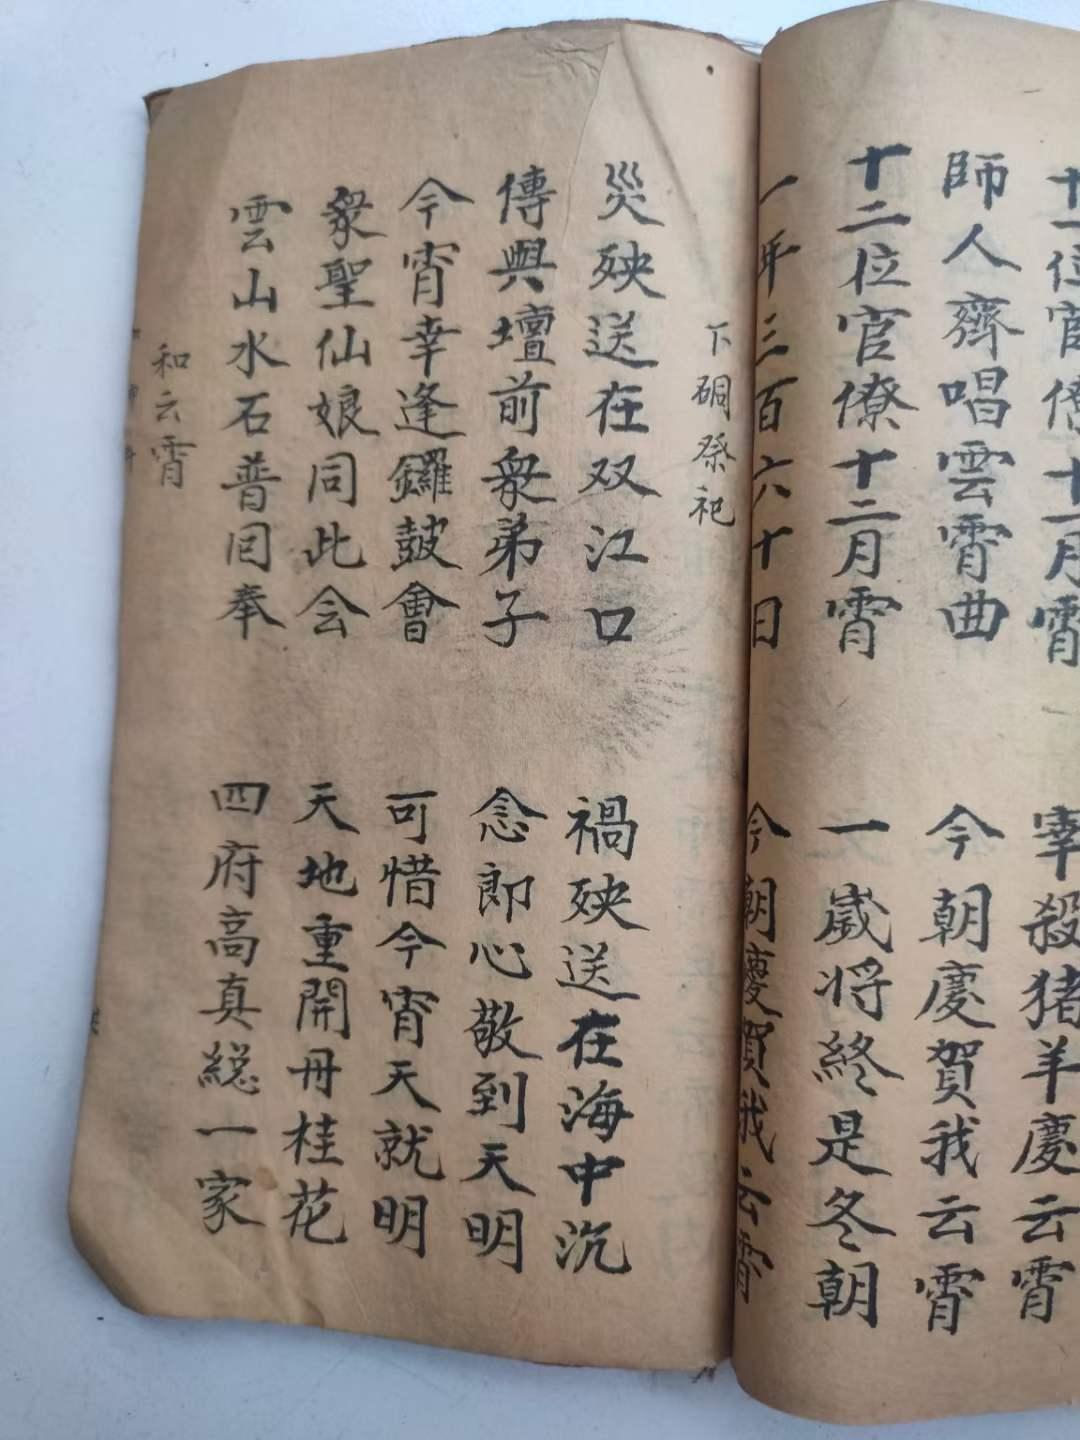 十一位官僚十一月霄
宰殺猪羊慶云霄
師人齊唱雲霄曲
今朝慶賀我云霄
十二位官僚十二月霄
一歲将終是冬朝
一年三百六十日
今朝慶賀我云霄
下硐祭祀
災殃送在双江口
禍殃送在海中沉
傳與壇前衆弟子
念郎心敬到天明
今宵幸逢鑼鼓會
可惜今宵天就明
衆聖仙娘同此会
天地重開丹桂花
雲山水石普囘奉
四府高真総一家
和云霄